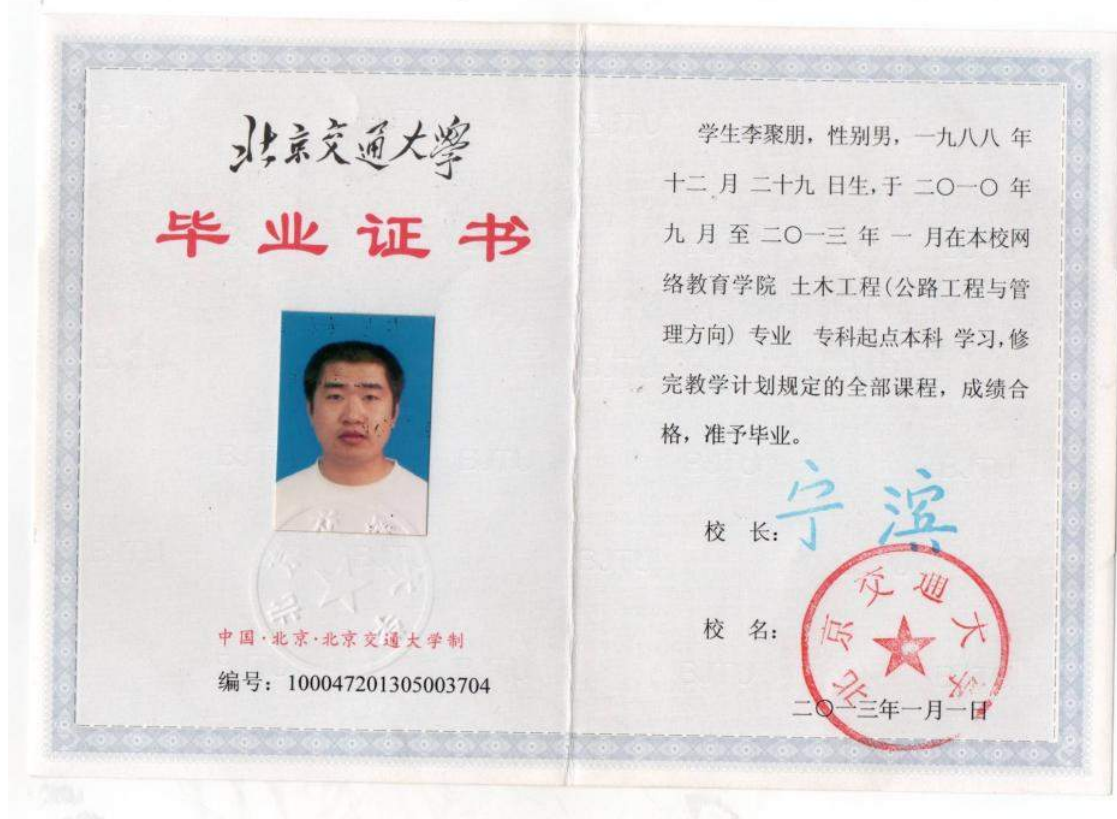 北京交通大學
毕业证书
中国·北京·北京交通大学制
编号：100047201305003704
学生李聚朋，性别男，一九八八 年
十二 月 二十九 日生,于 二〇一〇 年
九 月 至 二〇一三 年 一 月在本校网
络教育学院 土木工程(公路工程与管
理方向) 专业 专科起点本科 学习,修
完教学计划规定的全部课程，成绩合
格，准予毕业。
校 长：宁滨
校 名：
北京交通大学
二〇一三年一月一日